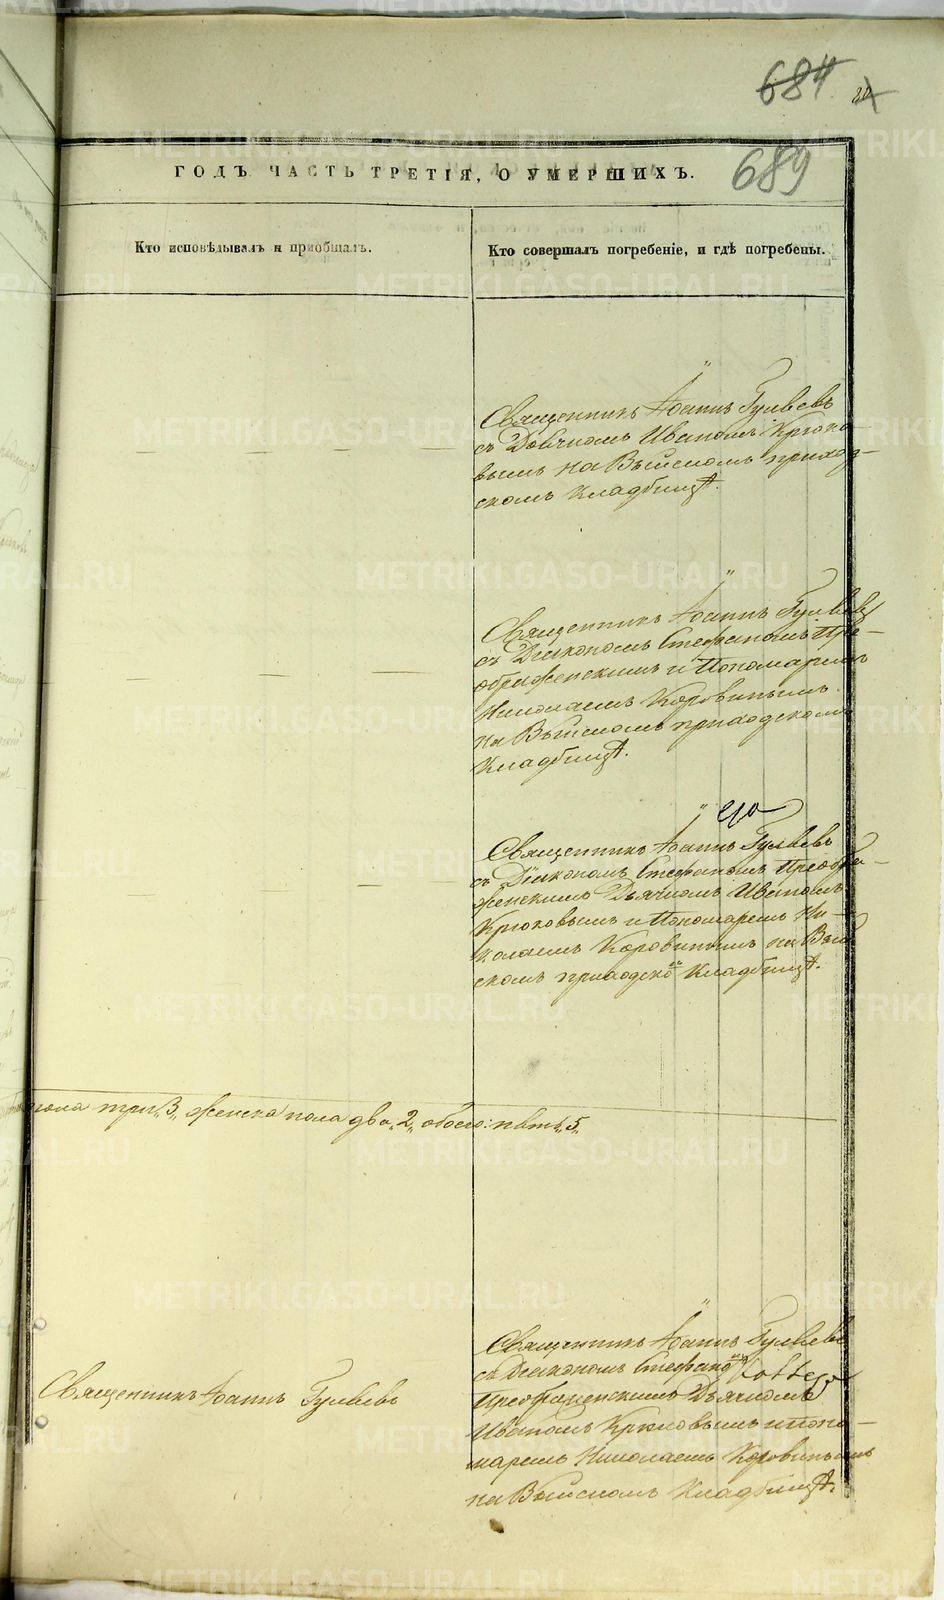 684
689
ГОДЪ, ЧАСТЬ ТРЕТІЯ, О УМЕРШИХЪ.
Кто исповѣдывалъ и пріобщалъ.
Кто совершалъ погребеніе, и гдѣ погребены.
Священникъ Іоаннъ Гуляевъ
съ Дьячкомъ Иваномъ Крюко-
вымъ на Выйскомъ приход-
скомъ кладбищѣ.
Священникъ Іоаннъ Гуляевъ
съ Діакономъ Стефаномъ Пре-
ображенскимъ и Пономаремъ
Николаемъ Коровинымъ
на Выйскомъ приходскомъ
кладбищѣ.
Священникъ Іоаннъ Гуляевъ
съ Діакономъ Стефаномъ Преобра-
женскимъ Дьячкомъ Иваномъ
Крюковымъ и Пономаремъ Ни-
колаемъ Коровинымъ на Вый-
скомъ приходскомъ кладбищѣ.
пола три „3„ женска пола два „2„ обоего: пять „5„
Священникъ Іоаннъ Гуляевъ
Священникъ Іоаннъ Гуляевъ
съ Діакономъ Стефаномъ
Преображенскимъ Дьячкомъ
Иваномъ Крюковымъ и Поно-
маремъ Николаемъ Коровинымъ
на Выйскомъ кладбищѣ.
METRIKI.GASO-URAL.RU